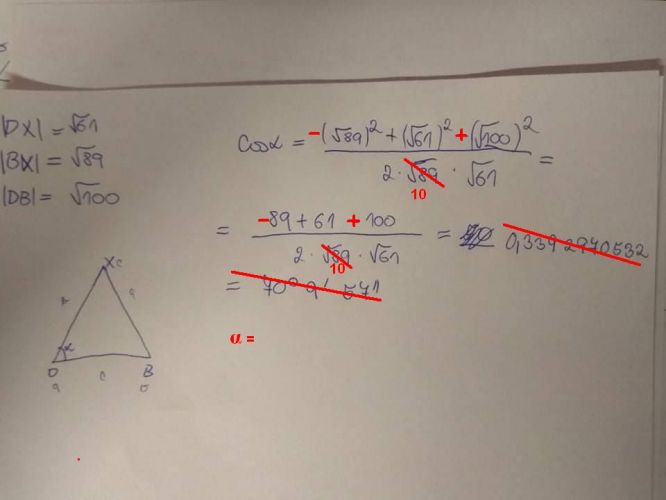 |DX| = √61
|BX| = √89
|DB| = √100
cos α = -(√89)² + (√61)² + (√100)²
2 · √89 · √61
=
10
= -89 + 61 + 100
2 · √89 · √61
10
= 0,3392970532
= 70° 9' 57"
α =
XC
α
D
B
c